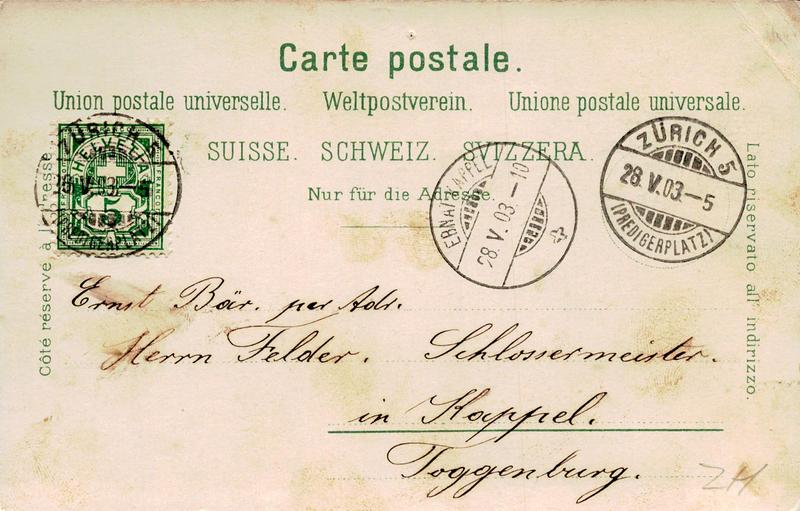 Carte postale.
Union postale universelle. Weltpostverein. Unione postale universale.
SUISSE. SCHWEIZ. SVIZZERA.
Nur für die Adresse.
Côté réservé à l'adresse.
Lato riservato all' indirizzo.
ZÜRICH 5
HELVETIA
FRANCO
5
V.03.-5
EBNAT-KAPPEL
28.V.03.-10
ZÜRICH 5
28.V.03.-5
(PREDIGERPLATZ)
Ernst Bär. per Adr.
Herrn Felder. Schlossermeister.
in Kappel.
Toggenburg.
ZH